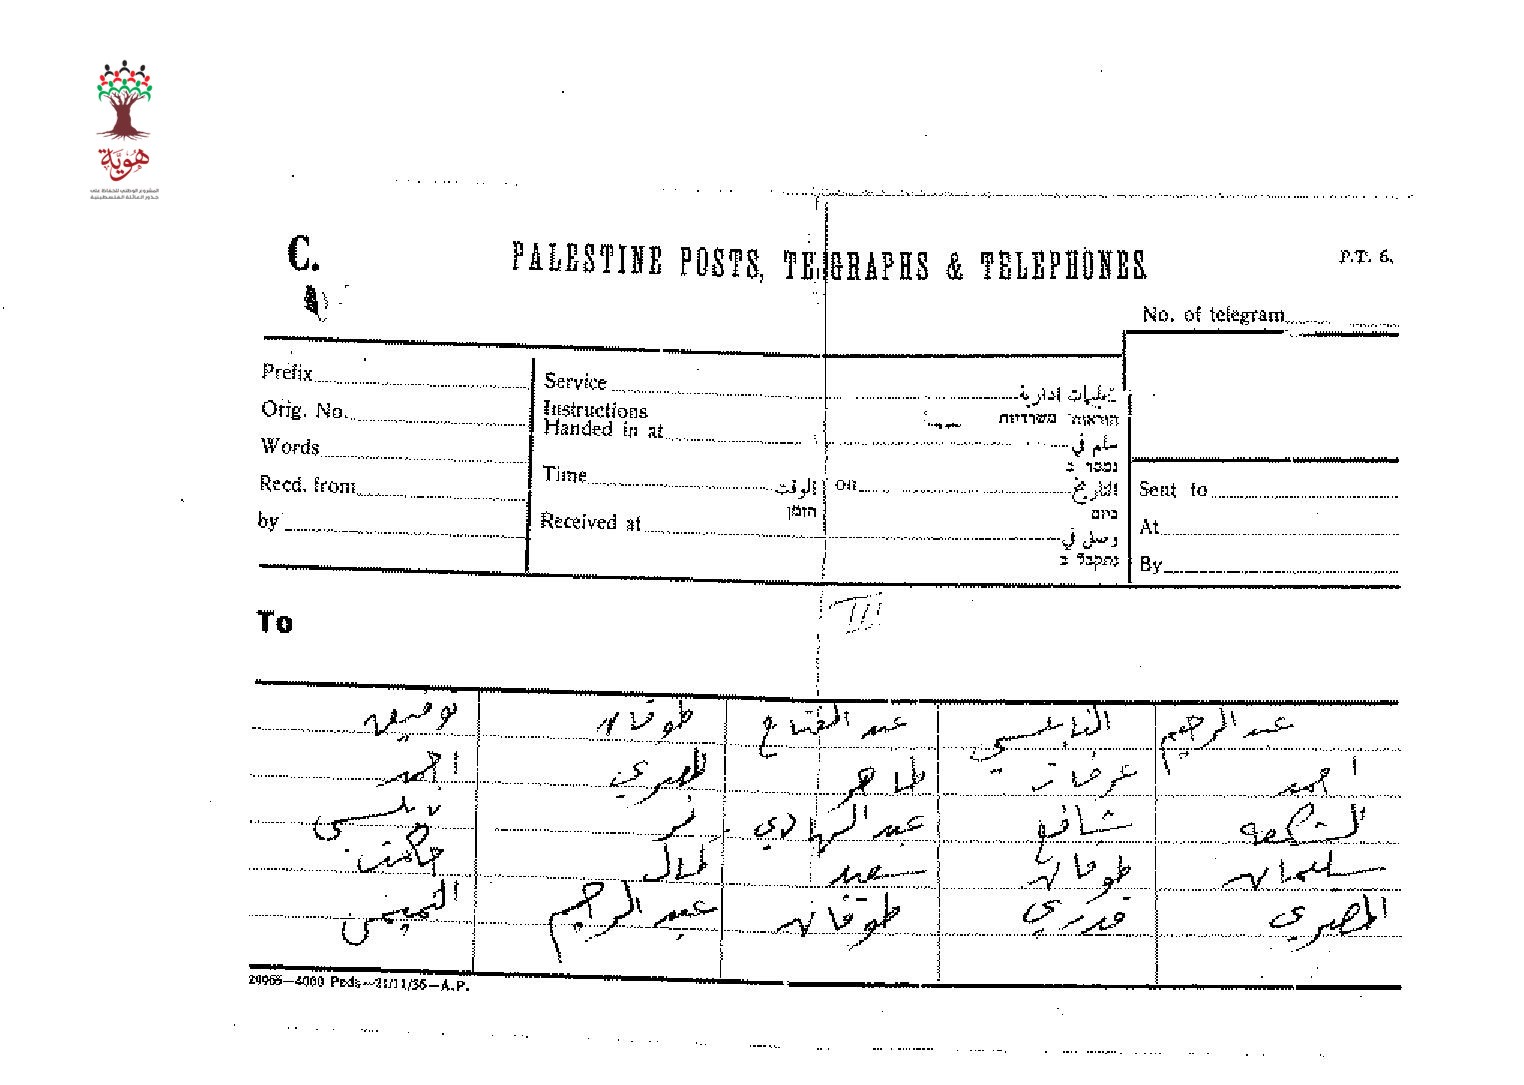 هوية
المشروع الوطني للحفاظ على
جذور العائلة الفلسطينية
C.
PALESTINE POSTS, TELEGRAPHS & TELEPHONES
P.T. 6.
No. of telegram
Prefix
Orig. No.
Words
Recd. from
by
Service تعليمات ادارية
Instructions הוראות משרדיות
Handed in at سلم في
נמסר ב
Time الوقت on التاريخ
הזמן ביום
Received at وصل في
נתקבל ב
Sent to
At
By
III
To
عبد الرحيم النابلسي عبد الفتاح طوقان توصيه
احمد عرفات طاهر المصري احمد
الشكعه شافع عبد الهادي نمر نابلسي
سليمان طوقان سعيد كمال حكمت
المصري قدري طوقان عبد الرحيم التميمي
29955—4000 Pads—21/11/35—A.P.